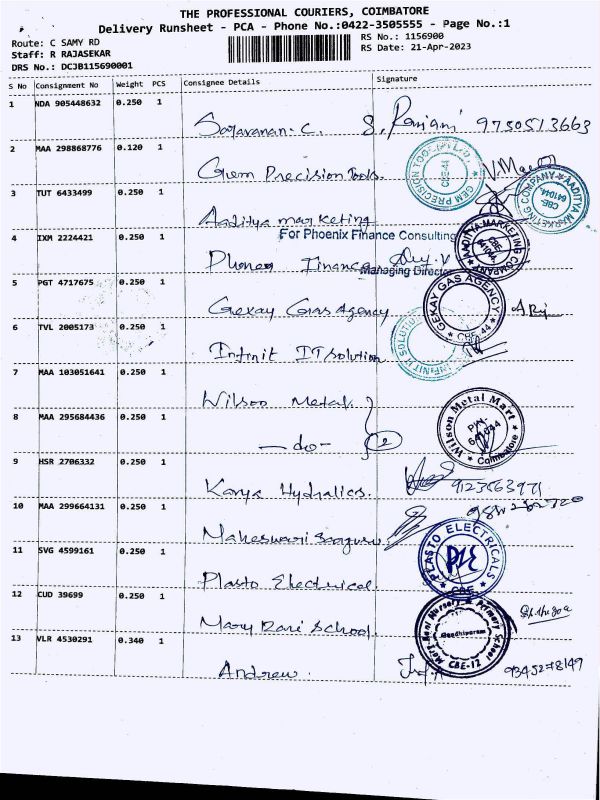 THE PROFESSIONAL COURIERS, COIMBATORE
Delivery Runsheet - PCA - Phone No.:0422-3505555 - Page No.:1
Route: C SAMY RD
RS No.: 1156900
Staff: R RAJASEKAR
RS Date: 21-Apr-2023
DRS No.: DCJB115690001
S No Consignment No Weight PCS Consignee Details Signature
1 NDA 905448632 0.250 1
Saravanan. C. S. Ranjani 9750513663
2 MAA 298868776 0.120 1
Gem Precision Tools.
GEM PRECISION TOOLS CBE-44
3 TUT 6433499 0.250 1
AADITYA MARKETING COMPANY CBE-641044
Aaditya marketing
For Phoenix Finance Consulting
4 IXM 2224421 0.250 1
AADITYA MARKETING COMPANY CBE-641044
Phoneo Finance
Managing Director
5 PGT 4717675 0.250 1
Gekay Gas Agency
GEKAY GAS AGENCY CBE-44
6 TVL 2005173 0.250 1
Infinit IT Solution
INFINIT IT SOLUTION
7 MAA 103051641 0.250 1
Wilson Metal.
8 MAA 295684436 0.250 1
- do - 2
Wilson Metal Mart PIN-641044 Coimbatore
9 HSR 2706332 0.250 1
Karya Hydralics.
10 MAA 299664131 0.250 1
Maheswari
11 SVG 4599161 0.250 1
Plasto Electrical
PLASTO ELECTRICALS PLE CBE
12 CUD 39699 0.250 1
Mary Rani School.
Mary Rani Nursery & Primary School Gandhipuram CBE-12
13 VLR 4530291 0.340 1
Andrew.